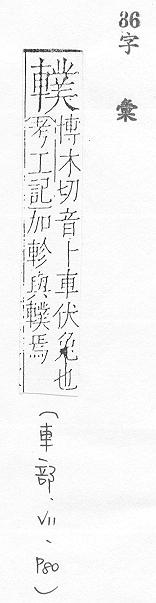 86字彙
轐
博木切音卜車伏兔也
考工記加軫與轐焉
(車部、VII、P80)